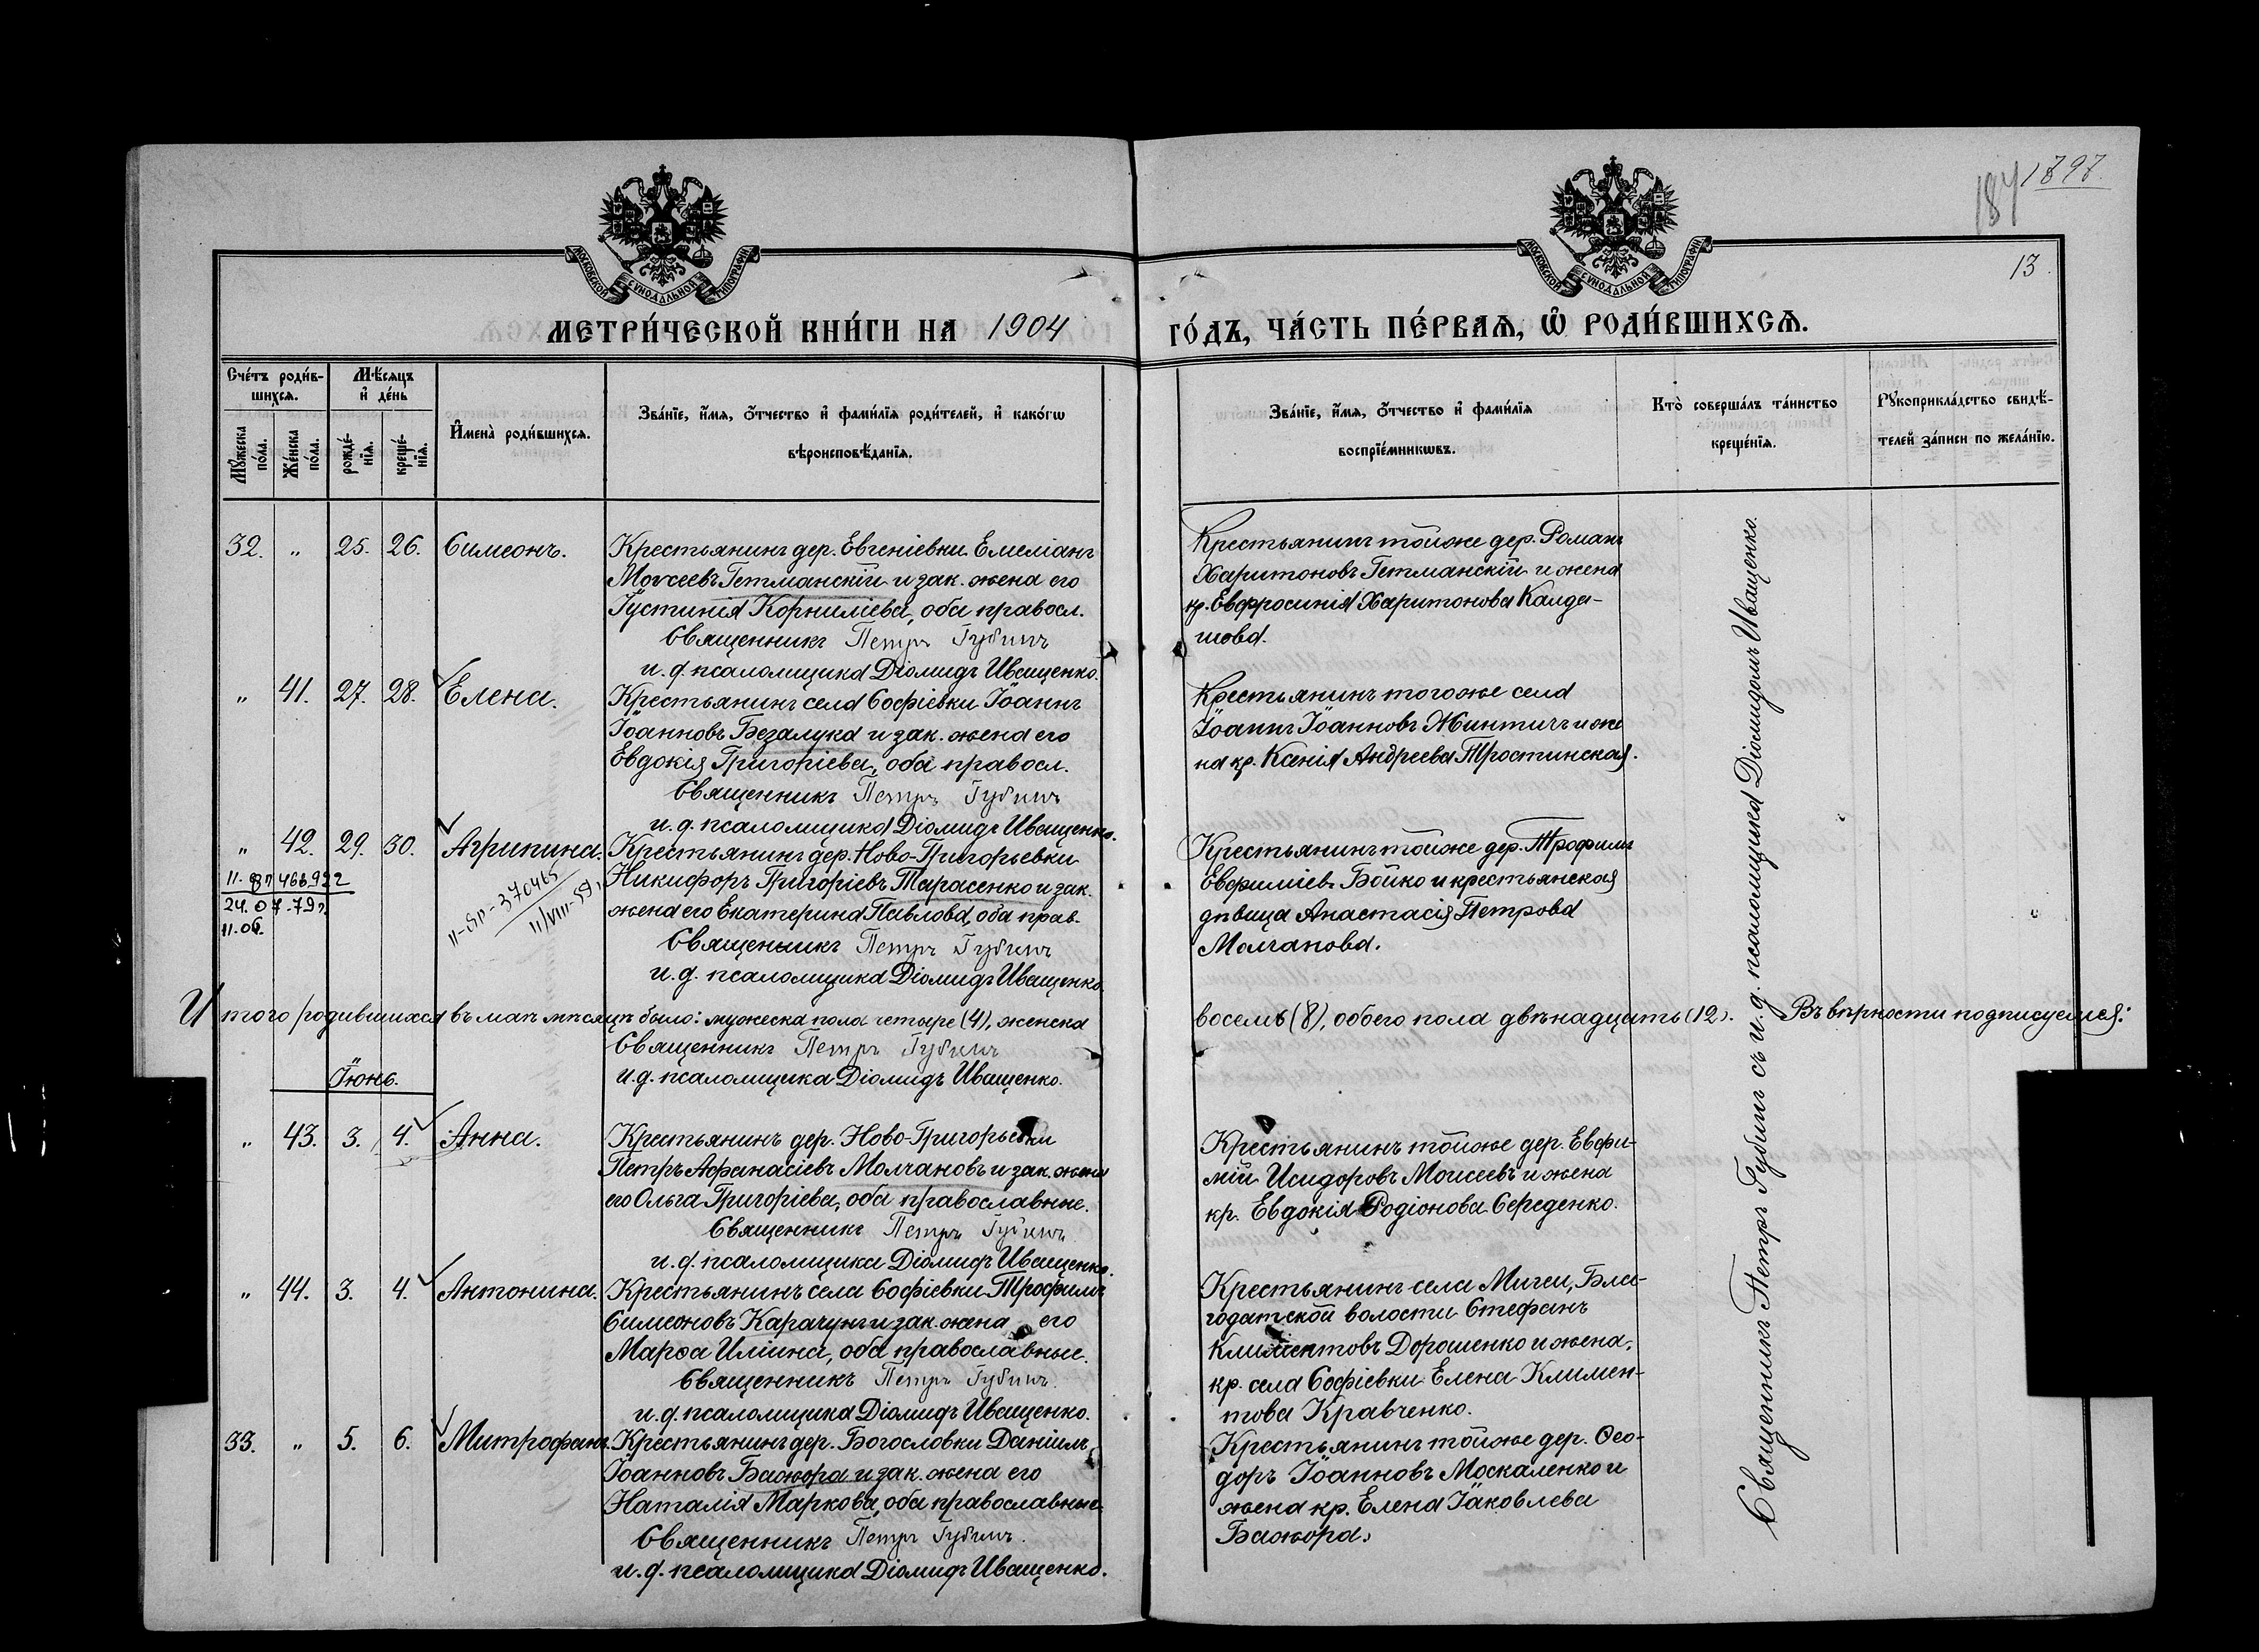 187 1797.
13.
МОСКОВСКОЙ СѴНОДАЛЬНОЙ ТИПОГРАФІИ
МОСКОВСКОЙ СѴНОДАЛЬНОЙ ТИПОГРАФІИ
МЕТРИ́ЧЕСКОЙ КНИ́ГИ НА 1904 ГО́ДЪ, ЧА́СТЬ ПЕ́РВАѦ, Ѽ РОДИ́ВШИХСѦ.
Сче́тъ роди́в-
шихсѧ.
Мѣ́сѧцъ
и҆ де́нь
Мꙋ́жеска
по́ла.
Же́нска
по́ла.
рожде́-
нїѧ.
креще́-
нїѧ.
И҆мена̀ роди́вшихсѧ.
Зва́нїе, и҆́мѧ, ѻ҆́тчество и҆ фамѵ́лїѧ роди́телей, и҆ како́гѡ
вѣроисповѣ́данїѧ.
Зва́нїе, и҆́мѧ, ѻ҆́тчество и҆ фамѵ́лїѧ
воспрїе́мникѡвъ.
Кто̀ соверша́лъ та́инство
креще́нїѧ.
Рꙋкоприкла́дство свидѣ́-
телей за́писи по жела́нїю.
32. " 25. 26. Симеонъ.
Крестьянинъ дер. Евгеніевки Емеліанъ
Моѵсеевъ Гетманскій и зак. жена его
Іустинія Корниліева, оба правосл.
Священникъ Петръ Губинъ
и. д. псаломщика Діомидъ Иващенко.
Крестьянинъ тойже дер. Романъ
Харитоновъ Гетманскій и жена
кр. Евфросинія Харитонова Калда-
шова.
" 41. 27. 28. Елена.
Крестьянинъ села Софіевки Іоаннъ
Іоанновъ Безалука и зак. жена его
Евдокія Григоріева, оба правосл.
Священникъ Петръ Губинъ
и. д. псаломщика Діомидъ Иващенко.
Крестьянинъ тогоже села
Іоаннъ Іоанновъ Жинтичъ и же
на кр. Ксенія Андреева Тростинская.
" 42. 29. 30. Агрипина.
11-ЯП 466922
24.07.79г.
11.06.
11-ЯП-370465
11/VIII-59г.
Крестьянинъ дер. Ново-Григорьевки
Никифоръ Григоріевъ Тарасенко и зак.
жена его Екатерина Павлова, оба прав.
Священникъ Петръ Губинъ
и. д. псаломщика Діомидъ Иващенко.
Крестьянинъ тойже дер. Трофимъ
Евфиміевъ Бойко и крестьянская
дѣвица Анастасія Петрова
Молчанова.
Итого родившихся въ маѣ мѣсяцѣ было: мужеска пола четыре (4), женска
восемь (8), обоего пола двѣнадцать (12). Въ вѣрности подписуемся:
Священникъ Петръ Губинъ
и. д. псаломщика Діомидъ Иващенко.
Іюнь.
" 43. 3. 4. Анна.
Крестьянинъ дер. Ново-Григорьевки
Петръ Афанасіевъ Молчановъ и зак. жена
его Ольга Григоріева, оба православные.
Священникъ Петръ Губинъ
и. д. псаломщика Діомидъ Иващенко.
Крестьянинъ тойже дер. Евфи-
мій Исидоровъ Моисеевъ и жена
кр. Евдокія Родіонова Середенко.
" 44. 3. 4. Антонина.
Крестьянинъ села Софіевки Трофимъ
Симеоновъ Карачунъ и зак. жена его
Марѳа Иліина, оба православные.
Священникъ Петръ Губинъ.
и. д. псаломщика Діомидъ Иващенко.
Крестьянинъ села Мигеи, Бла-
годатской волости Стефанъ
Климентовъ Дорошенко и жена,
кр. села Софіевки Елена Климен-
това Кравченко.
33. " 5. 6. Митрофанъ.
Крестьянинъ дер. Богословки Даніилъ
Іоанновъ Бажора и зак. жена его
Наталія Маркова, оба православные.
Священникъ Петръ Губинъ.
и. д. псаломщика Діомидъ Иващенко.
Крестьянинъ тойже дер. Ѳео-
доръ Іоанновъ Москаленко и
жена кр. Елена Іаковлева
Бажора.
Священникъ Петръ Губинъ съ и. д. псаломщика Діомидомъ Иващенко.